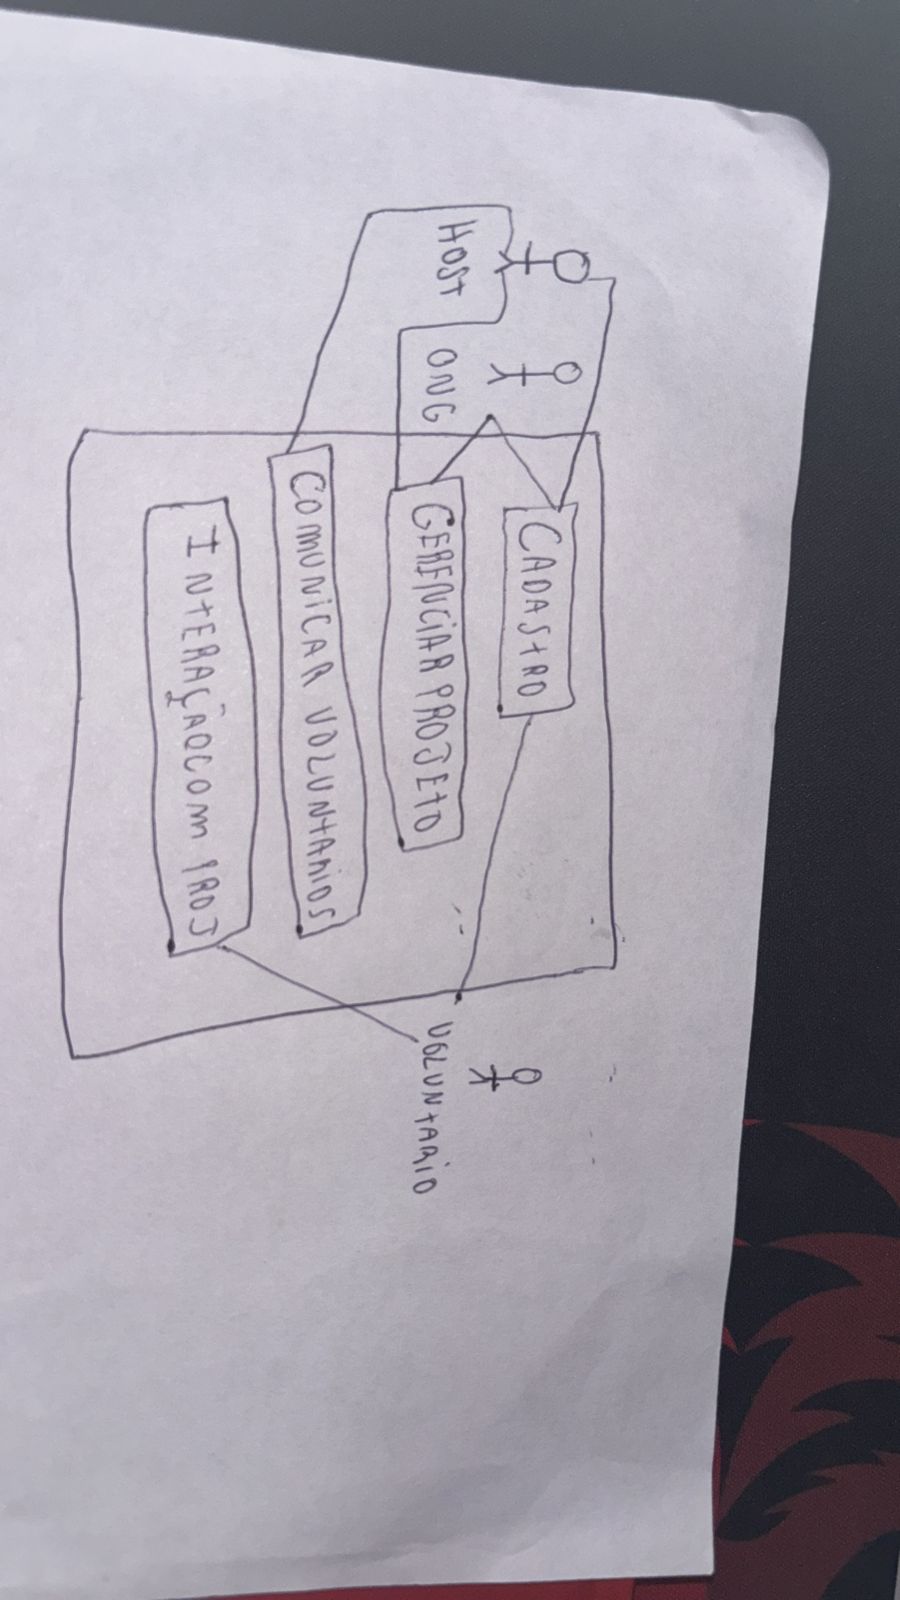 HOST
ONG
CADASTRO
GERENCIAR PROJETO
COMUNICAR VOLUNTARIOS
INTERAÇÃO COM PROJ
VOLUNTARIO